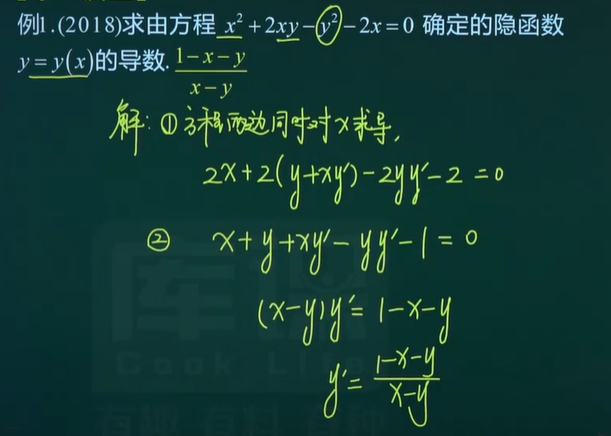 例1.(2018)求由方程 x²+2xy-y²-2x=0 确定的隐函数
y=y(x)的导数. (1-x-y)/(x-y)
解:①方程两边同时对x求导,
2x+2(y+xy′)-2yy′-2=0
② x+y+xy′-yy′-1=0
(x-y)y′=1-x-y
y′=(1-x-y)/(x-y)
库课
Cook Lite
有趣 有料